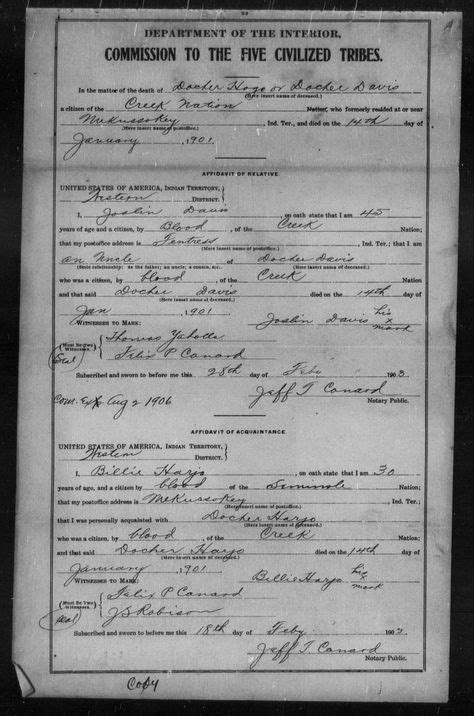 DEPARTMENT OF THE INTERIOR,
COMMISSION TO THE FIVE CIVILIZED TRIBES.
In the matter of the death of Docher Hogo or Docher Davis
(Here insert name of deceased.)
a citizen of the Creek Nation Nation, who formerly resided at or near
Mekussokey, Ind. Ter., and died on the 14th day of
(Here insert name of postoffice.)
January, 1901
AFFIDAVIT OF RELATIVE.
UNITED STATES OF AMERICA, INDIAN TERRITORY,
Western DISTRICT.
I, Joslin Davis, on oath state that I am 45
years of age and a citizen, by Blood, of the Creek Nation;
that my postoffice address is Fentress, Ind. Ter.; that I am
(Here insert name of postoffice.)
an Uncle of Docher Davis
(State relationship: As the father; an uncle; a cousin, etc.) (Here insert name of deceased.)
who was a citizen, by blood, of the Creek Nation;
and that said Docher Davis died on the 14th day of
(Here insert name of deceased.)
Jan, 1901
Joslin Davis his x mark
WITNESSES TO MARK:
(Must Be Two Witnesses.)
Thomas Yahola
Felix P Canard
(Seal)
Subscribed and sworn to before me this 28th day of Feby 1903
Jeff T. Canard
Notary Public.
Com. Exp. Aug 2 1906
AFFIDAVIT OF ACQUAINTANCE.
UNITED STATES OF AMERICA, INDIAN TERRITORY,
Western DISTRICT.
I, Billie Harjo, on oath state that I am 30
years of age, and a citizen by blood of the Seminole Nation;
that my postoffice address is Mekussokey, Ind. Ter.;
(Here insert name of postoffice.)
that I was personally acquainted with Docher Harjo
(Here insert name of deceased.)
who was a citizen, by blood, of the Creek Nation;
and that said Docher Harjo died on the 14th day of
(Here insert name of deceased.)
January, 1901
Billie Harjo his x mark
WITNESSES TO MARK:
(Must Be Two Witnesses.)
Felix P Canard
J S Robison
(Seal)
Subscribed and sworn to before me this 18th day of Feby 190
Jeff T. Canard
Notary Public.
Copy